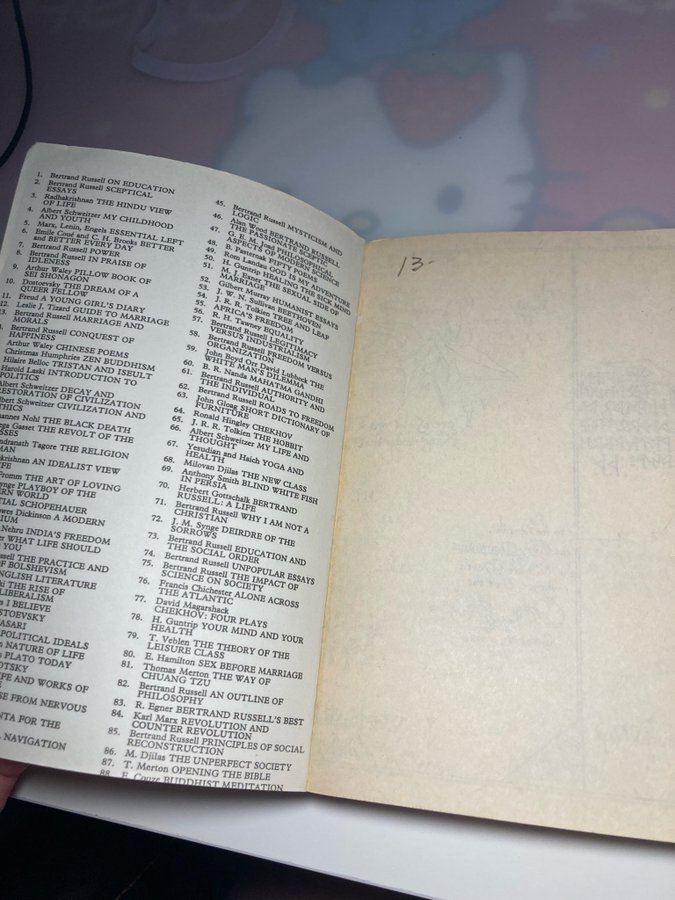 1. Bertrand Russell ON EDUCATION
2. Bertrand Russell SCEPTICAL
ESSAYS
3. Radhakrishnan THE HINDU VIEW
OF LIFE
4. Albert Schweitzer MY CHILDHOOD
AND YOUTH
5. Marx, Lenin, Engels ESSENTIAL LEFT
6. Emile Coué and C. H. Brooks BETTER
and BETTER EVERY DAY
7. Bertrand Russell POWER
8. Bertrand Russell IN PRAISE OF
IDLENESS
9. Arthur Waley PILLOW BOOK OF
SEI SHONAGON
10. Dostoevsky THE DREAM OF A
QUEER FELLOW
11. Freud A YOUNG GIRL'S DIARY
12. Leslie J. Tizard GUIDE TO MARRIAGE
Bertrand Russell MARRIAGE AND
MORALS
Bertrand Russell CONQUEST OF
HAPPINESS
Arthur Waley CHINESE POEMS
Christmas Humphries ZEN BUDDHISM
Hilaire Belloc TRISTAN AND ISEULT
Harold Laski INTRODUCTION TO
POLITICS
Albert Schweitzer DECAY AND
RESTORATION OF CIVILIZATION
Schweitzer CIVILIZATION AND
THICS
annes Nohl THE BLACK DEATH
ega Gasset THE REVOLT OF THE
SSES
ndranath Tagore THE RELIGION
MAN
akrishnan AN IDEALIST VIEW
IFE
Fromm THE ART OF LOVING
nge PLAYBOY OF THE
ERN WORLD
TIAL SCHOPEHAUER
wes Dickinson A MODERN
IUM
Nehru INDIA'S FREEDOM
er WHAT LIFE SHOULD
YOU
sell THE PRACTICE AND
OF BOLSHEVISM
NGLISH LITERATURE
ki THE RISE OF
LIBERALISM
s I BELIEVE
STOEVSKY
ASARI
POLITICAL IDEALS
n NATURE OF LIFE
n PLATO TODAY
OTSKY
IFE AND WORKS OF
SE FROM NERVOUS
NTA FOR THE
NAVIGATION
45. Bertrand Russell MYSTICISM AND
LOGIC
46. Alan Wood BERTRAND RUSSELL
THE PASSIONATE SCEPTIC
47. C. E. M. Joad PHILOSOPHICAL
ASPECTS OF MODERN SCIENCE
48. B. Pasternak FIFTY POEMS
49. Rom Landau GOD IS MY ADVENTURE
50. H. Guntrip HEALING THE SICK MIND
51. M. J. Exner THE SEXUAL SIDE OF
MARRIAGE
52. Gilbert Murray HUMANIST ESSAYS
53. J. W. N. Sullivan BEETHOVEN
54. J. R. R. Tolkien TREE AND LEAF
55. AFRICA'S FREEDOM
56. R. H. Tawney EQUALITY
57. Bertrand Russell LEGITIMACY
VERSUS INDUSTRIALISM
58. Bertrand Russell FREEDOM VERSUS
ORGANIZATION
59. John Boyd Orr David Lubbock THE
WHITE MAN'S DILEMMA
60. B. R. Nanda MAHATMA GANDHI
61. Bertrand Russell AUTHORITY AND
THE INDIVIDUAL
62. Bertrand Russell ROADS TO FREEDOM
63. John Gloag SHORT DICTIONARY OF
FURNITURE
64. Ronald Hingley CHEKHOV
65. J. R. R. Tolkien THE HOBBIT
66. Albert Schweitzer MY LIFE AND
THOUGHT
67. Yesudian and Haich YOGA AND
HEALTH
68. Milovan Djilas THE NEW CLASS
69. Anthony Smith BLIND WHITE FISH
IN PERSIA
70. Herbert Gottschalk BERTRAND
RUSSELL: A LIFE
71. Bertrand Russell WHY I AM NOT A
CHRISTIAN
72. J. M. Synge DEIRDRE OF THE
SORROWS
73. Bertrand Russell EDUCATION AND
THE SOCIAL ORDER
74. Bertrand Russell UNPOPULAR ESSAYS
75. Bertrand Russell THE IMPACT OF
SCIENCE ON SOCIETY
76. Francis Chichester ALONE ACROSS
THE ATLANTIC
77. David Magarshack
CHEKHOV: FOUR PLAYS
78. H. Guntrip YOUR MIND AND YOUR
HEALTH
79. T. Veblen THE THEORY OF THE
LEISURE CLASS
80. E. Hamilton SEX BEFORE MARRIAGE
81. Thomas Merton THE WAY OF
CHUANG TZU
82. Bertrand Russell AN OUTLINE OF
PHILOSOPHY
83. R. Egner BERTRAND RUSSELL'S BEST
84. Karl Marx REVOLUTION AND
COUNTER REVOLUTION
85. Bertrand Russell PRINCIPLES OF SOCIAL
RECONSTRUCTION
86. M. Djilas THE UNPERFECT SOCIETY
87. T. Merton OPENING THE BIBLE
88. E. Conze BUDDHIST MEDITATION
13-